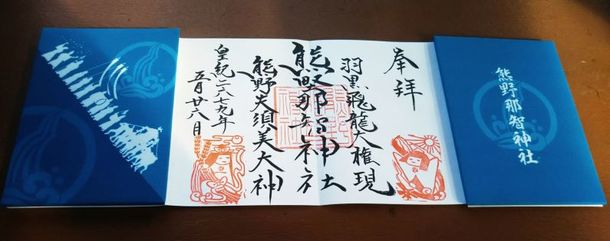 奉拝
羽黒飛龍大権現
熊野那智神社
熊野夫須美大神
皇紀二六七九年
五月廿八日
熊野那智神社